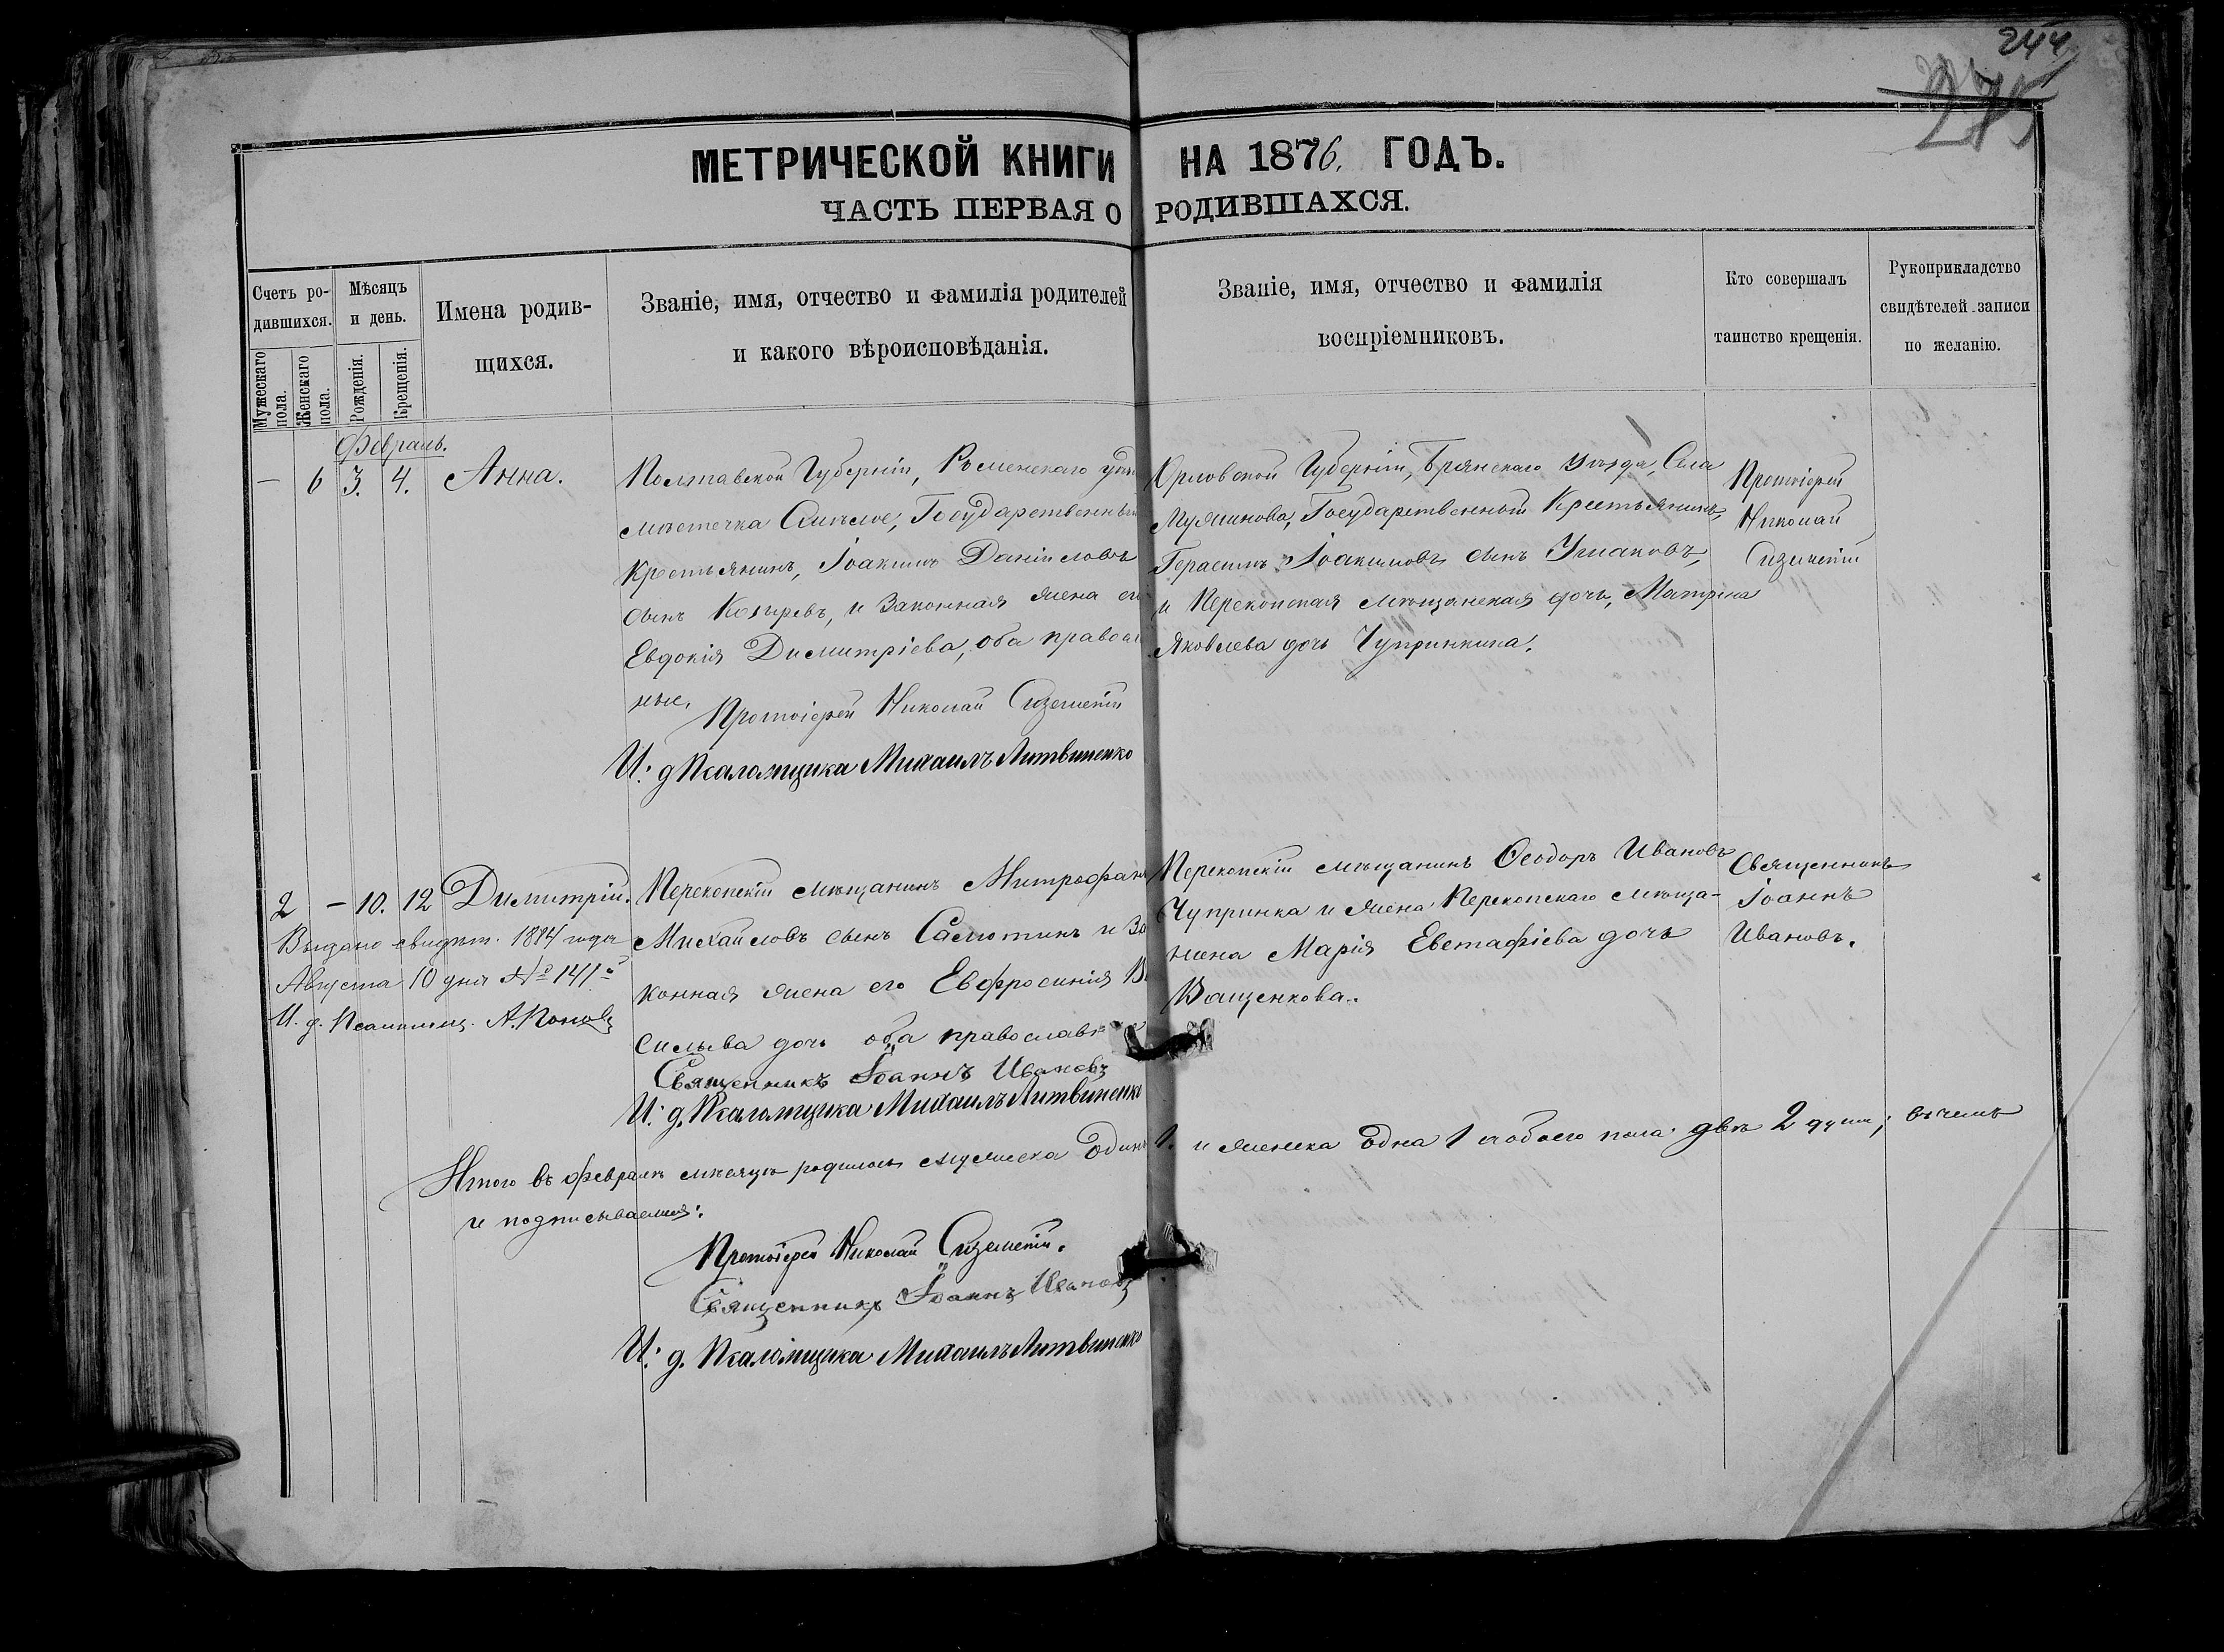 244
275
МЕТРИЧЕСКОЙ КНИГИ НА 1876. ГОДЪ.
ЧАСТЬ ПЕРВАЯ О РОДИВШАХСЯ.
Счетъ ро-
дившихся.
Мужескаго
пола.
Женскаго
пола.
Мѣсяцъ
и день.
Рожденія.
Крещенія.
Имена родив-
щихся.
Званіе, имя, отчество и фамилія родителей
и какого вѣроисповѣданія.
Званіе, имя, отчество и фамилія
воспріемниковъ.
Кто совершалъ
таинство крещенія.
Рукоприкладство
свидѣтелей записи
по желанію.
Февраль.
— 6 3. 4. Анна.
Полтавской Губерніи, Роменскаго уѣз
мѣстечка Смѣлое, Государственный
Крестьянинъ, Іоакимъ Даніиловъ
сынъ Козыревъ, и Законная жена его
Евдокія Димитріева, оба правосл
ные.
Протоіерей Николай Сиземскій
И. д. Псаломщика Михаилъ Литвиненко
Орловской Губерніи, Брянскаго Уѣзда, Села
Государственной Крестьянинъ,
Герасимъ Іоакимовъ сынъ Ушаковъ,
и Перекопская мѣщанская дочь, Матрена
Яковлева дочь Чупринкина.
Протоіерей
Николай
Сиземскій
2 — 10. 12 Димитрій.
Выдано свидѣт. 1894 года
Августа 10 дня № 141й
И. д. Псаломщ. А. Поповъ
Перекопскій мѣщанинъ Митрофанъ
Михайловъ сынъ Самотинъ и За
конная жена его Евфросинія Ва
сильева дочь оба православные
Священникъ Іоаннъ Ивановъ
И. д. Псаломщика Михаилъ Литвиненко
Перекопскій мѣщанинъ Ѳеодоръ Ивановъ
Чупринка и жена Перекопскаго мѣща-
нина Марія Евстафіева дочь
Ващенкова.
Священникъ
Іоаннъ
Ивановъ.
Итого въ февралѣ мѣсяцѣ родилось мужеска Одинъ 1. и женска Одна 1 и обоего пола двѣ 2 души; въ чемъ
и подписываемся:
Протоіерей Николай Сиземскій.
Священникъ Іоаннъ Ивановъ
И. д. Псаломщика Михаилъ Литвиненко